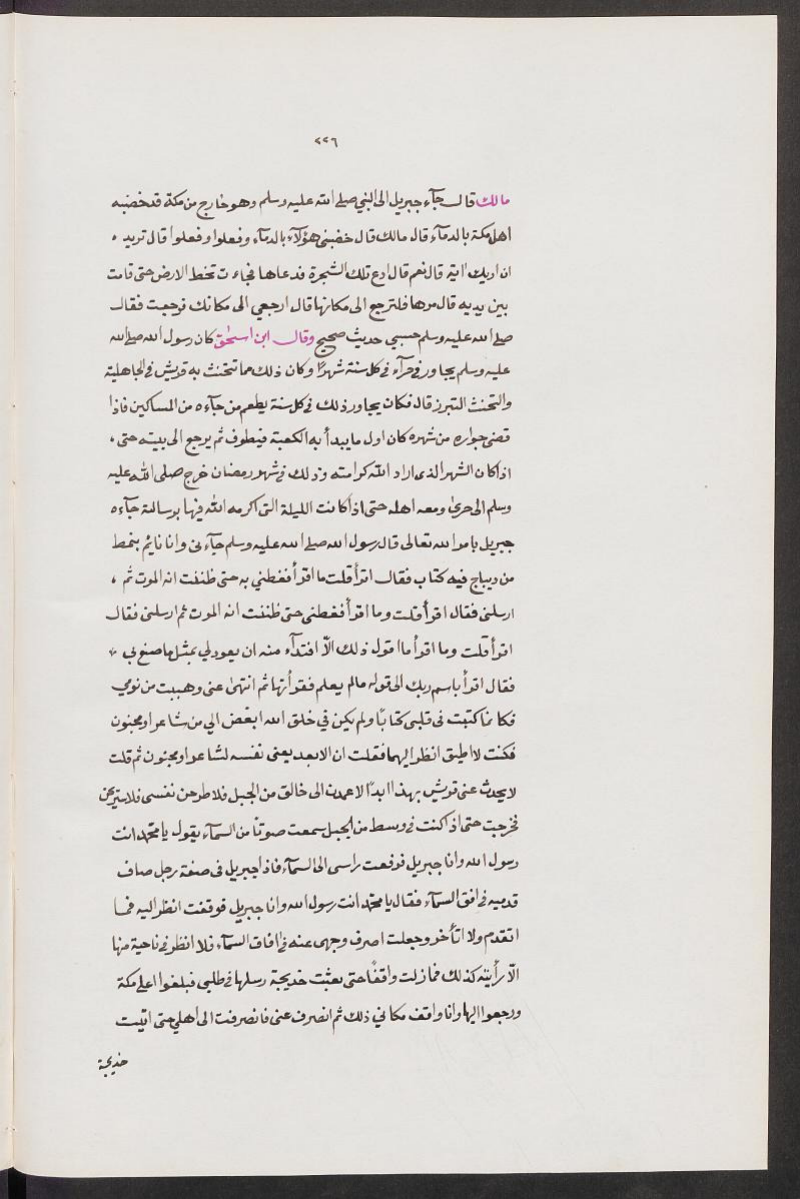 ٢٢٦
مالك قال جآء جبريل الى النبي صلى الله عليه وسلم وهو خارج من مكة قد خضبه
اهل مكة بالدمآء قال مالك قال خضبنى هؤلآء بالدمآء وفعلوا وفعلوا قال تريد ،
ان اريك اية قال نعم قال ادع تلك الشجرة فدعاها فجاءت تخط الارض حتى قامت
بين يديه قال مرها فلترجع الى مكانها قال ارجعي الى مكانك فرجعت فقال
صلى الله عليه وسلم حسبي حديث صحيح وقال ابن اسحٰق كان رسول الله صلى الله
عليه وسلم يجاور في حرآء فى كل سنة شهرًا وكان ذلك مما تتحنث به قريش في الجاهلية
والتحنث التبرز قال فكان يجاور ذلك فى كل سنة يطعم من جآءه من المساكين فاذا
قضى جواره من شهره كان اول ما يبدأ به الكعبة فيطوف ثم يرجع الى بيته حتى ،
اذا كان الشهر الذى اراد الله كرامته وذلك فى شهر رمضان خرج صلى الله عليه
وسلم الى حرىٰ ومعه اهله حتى اذا كانت الليلة التى اكرمه الله فيها برسالته جآءه
جبريل بامر الله تعالى قال رسول الله صلى الله عليه وسلم جآءنى وانا نايم بنمط
من ديباج فيه كتاب فقال اقرأ قلت ما اقرأ فغطني به حتى ظننت انه الموت ثم ،
ارسلنى فقال اقرأ قلت وما اقرأ فغطنى حتى ظننت انه الموت ثم ارسلنى فقال
اقرأ قلت وما اقرأ ما اقول ذلك الّا افتدآء منه ان يعود لي بمثل ما صنع بي
فقال اقرأ باسم ربك الى قوله مالم يعلم فقرأتها ثم انتهىٰ عنى وهببت من نومي
فكانما كتبت فى قلبى كتابًا ولم يكن في خلق الله ابغض الي من شاعر او مجنون
فكنت لا اطيق انظر اليهما فقلت ان الابعد يعنى نفسه لشاعر او مجنون ثم قلت
لا يحدث عنى قريش بهذا ابدًا لاعمدن الى خالق من الجبل فلا طرحن نفسى فلاستريحن
فخرجت حتى اذ اكنت فى وسط من الجبل سمعت صوتًا من السمآء يقول يا محمّد انت
رسول الله وانا جبريل فرفعت راسى الى السمآء فاذا جبريل فى صفة رجل صاف
قدميه فى افق السمآء فقال يا محمّد انت رسول الله وانا جبريل فوقفت انظر اليه فما
اتقدم ولا اتأخر وجعلت اصرف وجهى عنه فى افاق السمآء فلا انظر فى ناحية منها
الّا رأيته كذلك فمازلت واقفًا حتى بعثت خديجة رسلها فى طلبى فبلغوا اعلى مكة
ورجعوا اليها وانا واقف مكاني ذلك ثم انصرف عنى فانصرفت الى اهلي حتى اتيت
خديجة